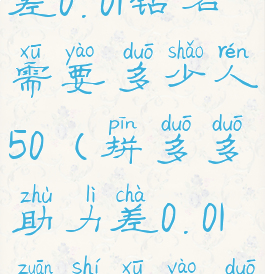 差0.01钻石
xū yào duō shǎo rén
需要多少人
pīn duō duō
50(拼多多
zhù lì chà
助力差0.01
zuān shí xū yào duō